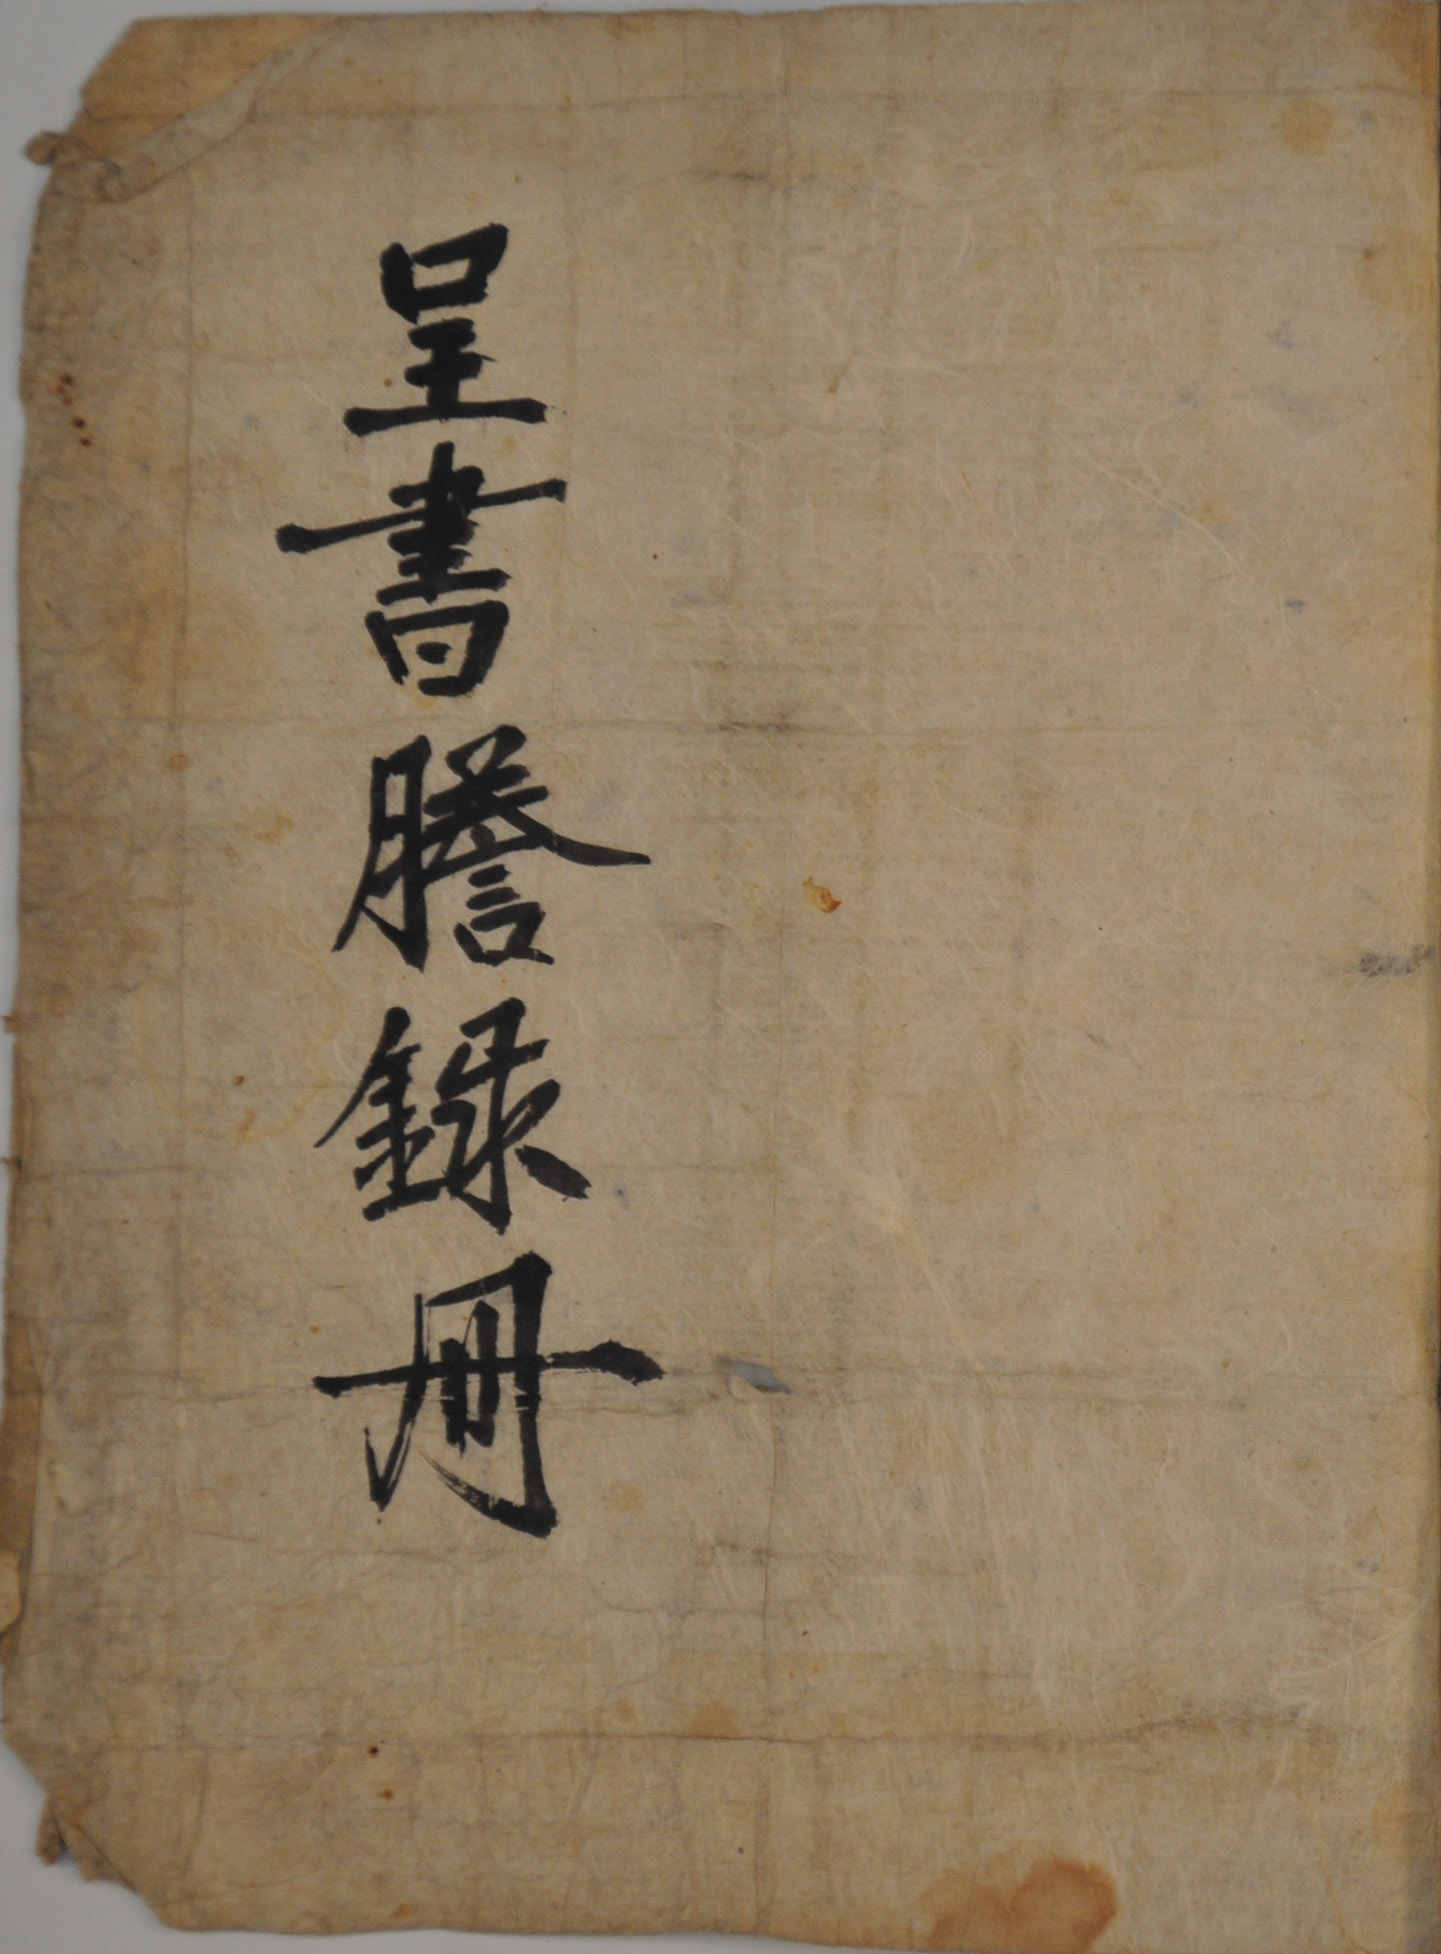 呈書謄錄冊